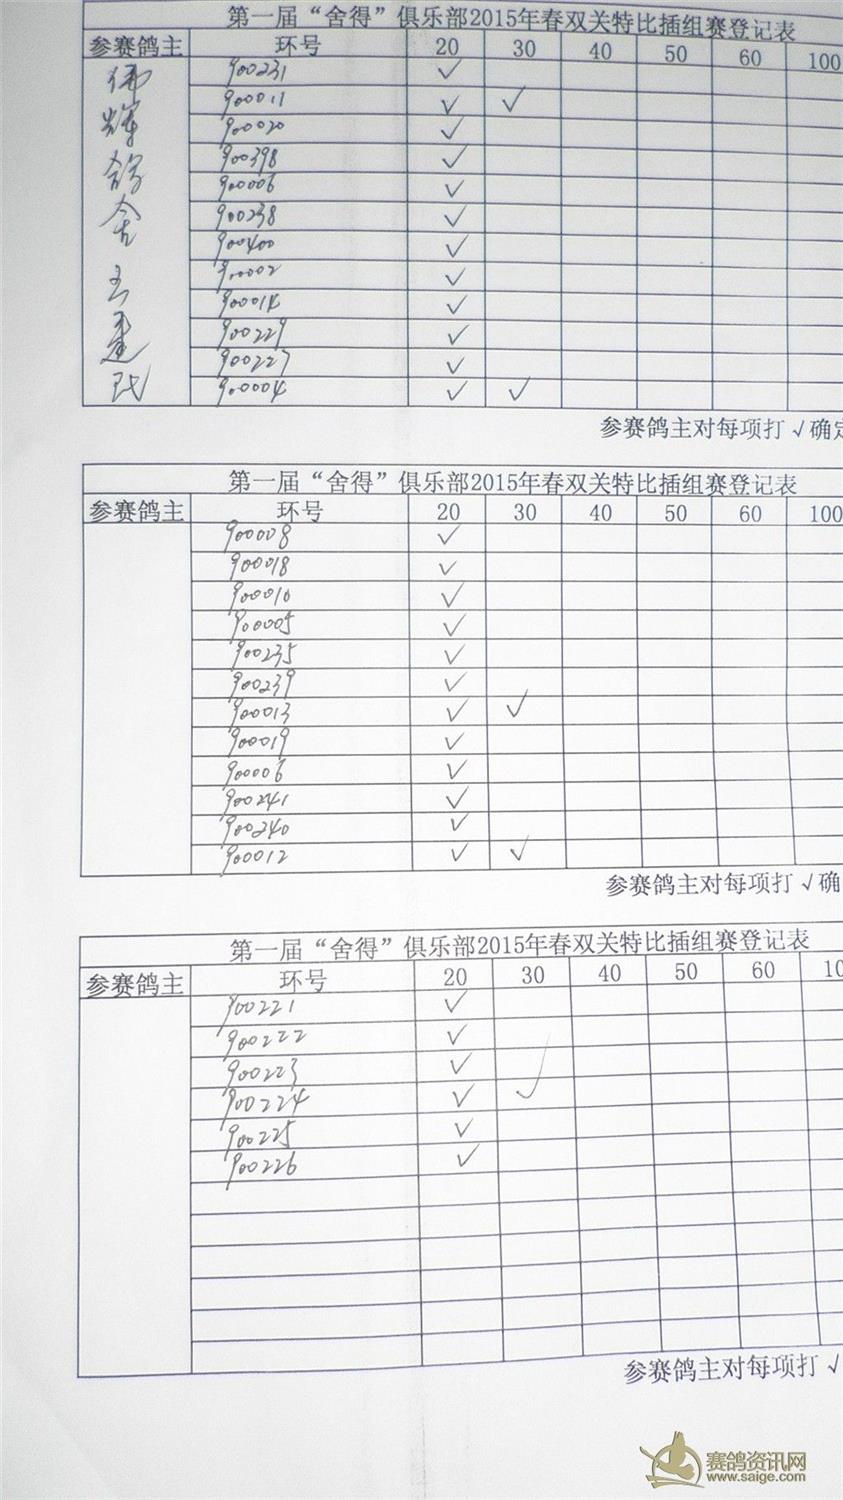 第一届“舍得”俱乐部2015年春双关特比插组赛登记表
参赛鸽主 环号 20 30 40 50 60 100
伟辉鸽舍 王建民
900231 ✓
900011 ✓ ✓
900020 ✓
900398 ✓
900006 ✓
900238 ✓
900400 ✓
900002 ✓
900014 ✓
900229 ✓
900227 ✓
900004 ✓ ✓
参赛鸽主对每项打√确定
第一届“舍得”俱乐部2015年春双关特比插组赛登记表
参赛鸽主 环号 20 30 40 50 60 100
900008 ✓
900018 ✓
900010 ✓
900005 ✓
900235 ✓
900239 ✓
900013 ✓ ✓
900019 ✓
900006 ✓
900241 ✓
900240 ✓
900012 ✓ ✓
参赛鸽主对每项打√确
第一届“舍得”俱乐部2015年春双关特比插组赛登记表
参赛鸽主 环号 20 30 40 50 60 10
900221 ✓
900222 ✓
900223 ✓
900224 ✓ ✓
900225 ✓
900226 ✓
参赛鸽主对每项打√
赛鸽资讯网
www.saige.com